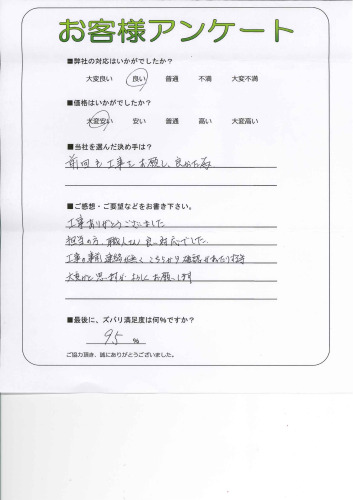 お客様アンケート
■弊社の対応はいかがでしたか？
大変良い 良い 普通 不満 大変不満
■価格はいかがでしたか？
大変安い 安い 普通 高い 大変高い
■当社を選んだ決め手は？
前回も工事をお願いし、良かった為
■ご感想・ご要望などをお書き下さい。
工事ありがとうございました
担当の方、職人さん良い対応でした。
工事の事前連絡が無く こちらから確認
大変かと思いますが よろしくお願いします
■最後に、ズバリ満足度は何％ですか？
95 %
ご協力頂き、誠にありがとうございました。